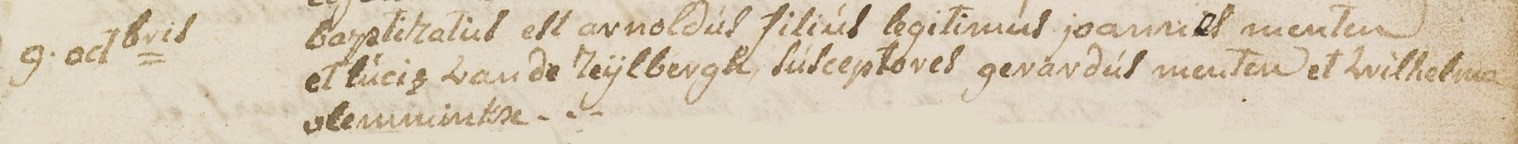 9. octbris baptizatus est arnoldús filiús legitimús joannis menten
et lúciæ van de Zeÿlbergh, súsceptores gerardús menten et wilhelma
vlemminkx - . -